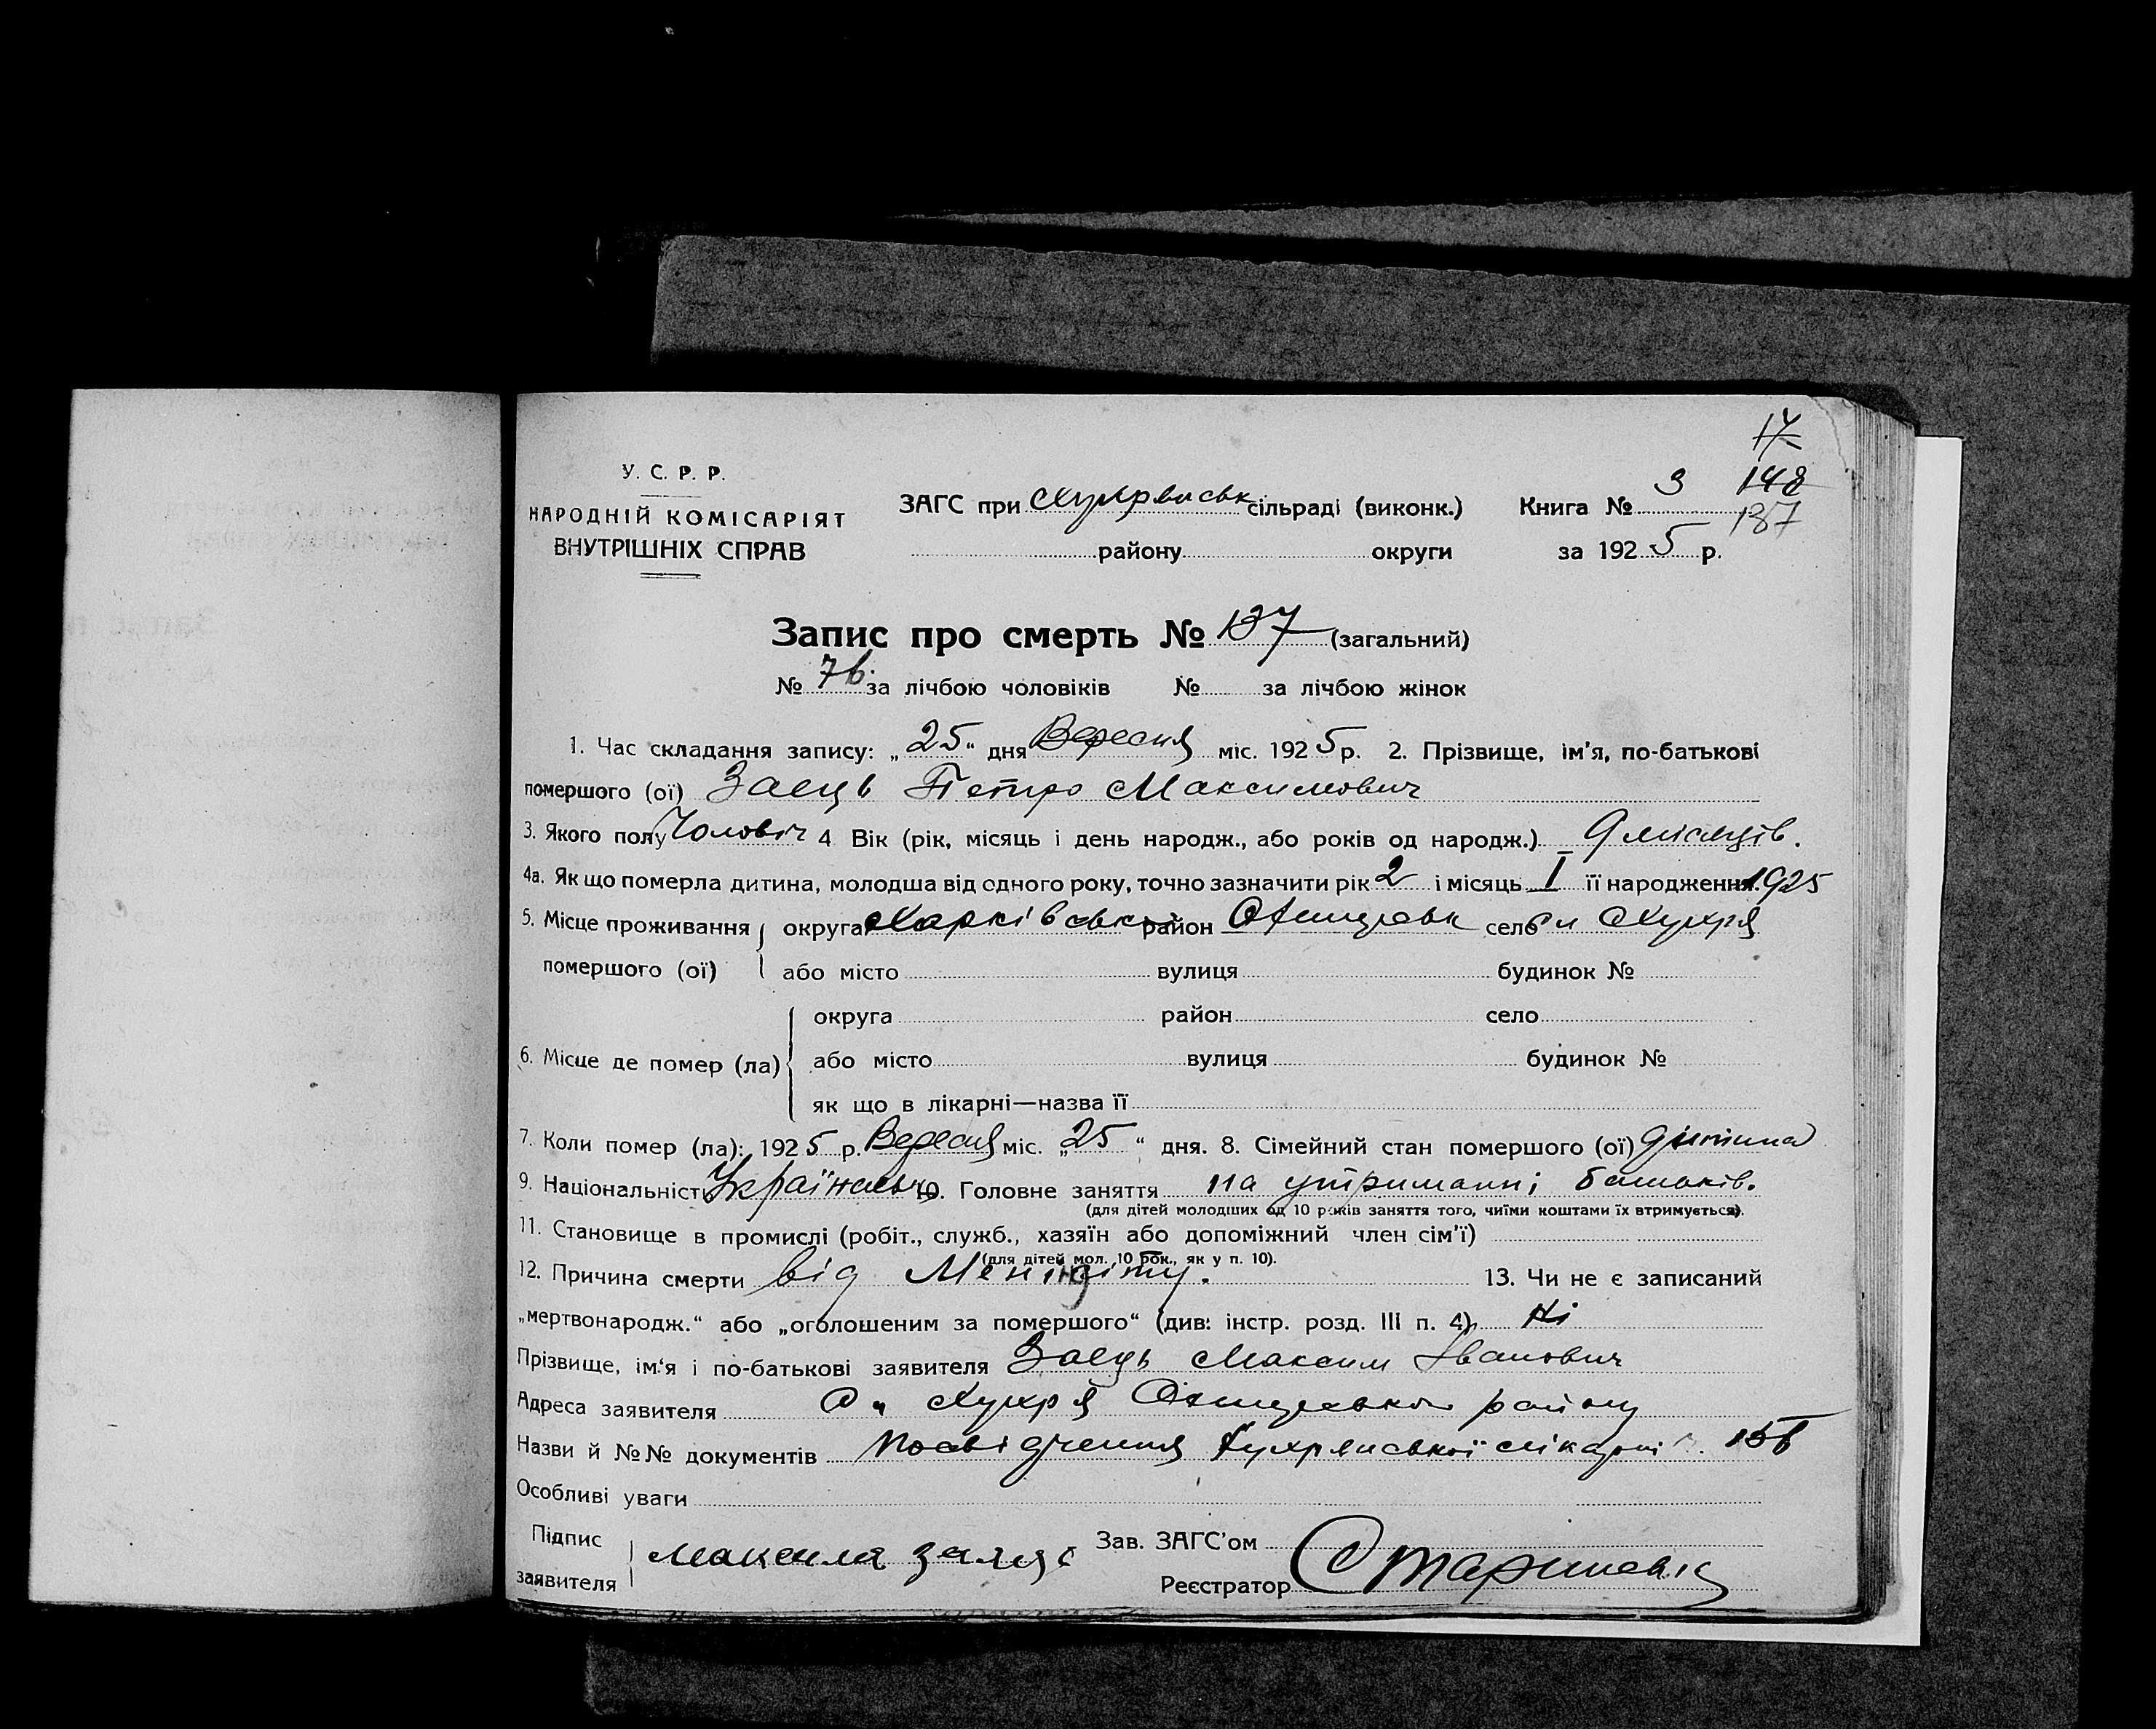 17
У. С. Р. Р.
НАРОДНІЙ КОМІСАРІЯТ
ВНУТРІШНІХ СПРАВ
ЗАГС при Хухрянськ сільраді (виконк.)
району округи
Книга № 3 148
137
за 1925 р.
Запис про смерть № 137 (загальний)
№ 76. за лічбою чоловіків № за лічбою жінок
1. Час складання запису: „25“ дня Вересня міс. 1925 р. 2. Прізвище, ім'я, по-батькові
помершого (ої) Заець Петро Максимович
3. Якого полу Чоловіч 4 Вік (рік, місяць і день народж., або років од народж.) 9 місяців.
4а. Як що померла дитина, молодша від одного року, точно зазначити рік 2 і місяць I її народження. 1925
5. Місце проживання округа Харківськ район Охтирськ село Сл Хухря
помершого (ої) або місто вулиця будинок №
округа район село
6. Місце де помер (ла) або місто вулиця будинок №
як що в лікарні—назва її
7. Коли помер (ла): 1925 р. Вересня міс. „25“ дня. 8. Сімейний стан помершого (ої) дитина
9. Національність Українець 10. Головне заняття на утриманні батьків.
(для дітей молодших од 10 років заняття того, чиїми коштами їх втримується).
11. Становище в промислі (робіт., служб., хазяїн або допоміжний член сім'ї)
(для дітей мол. 10 рок., як у п. 10).
12. Причина смерти від Менінгіту. 13. Чи не є записаний
„мертвонародж.“ або „оголошеним за помершого“ (див: інстр. розд. III п. 4) Ні
Прізвище, ім'я і по-батькові заявителя Заець Максим Іванович
Адреса заявителя Сл Хухря району
Назви й №№ документів Посвідчення Хухрянської лікарні
Особливі уваги
Підпис
заявителя
Максим
Зав. ЗАГС'ом
Реєстратор